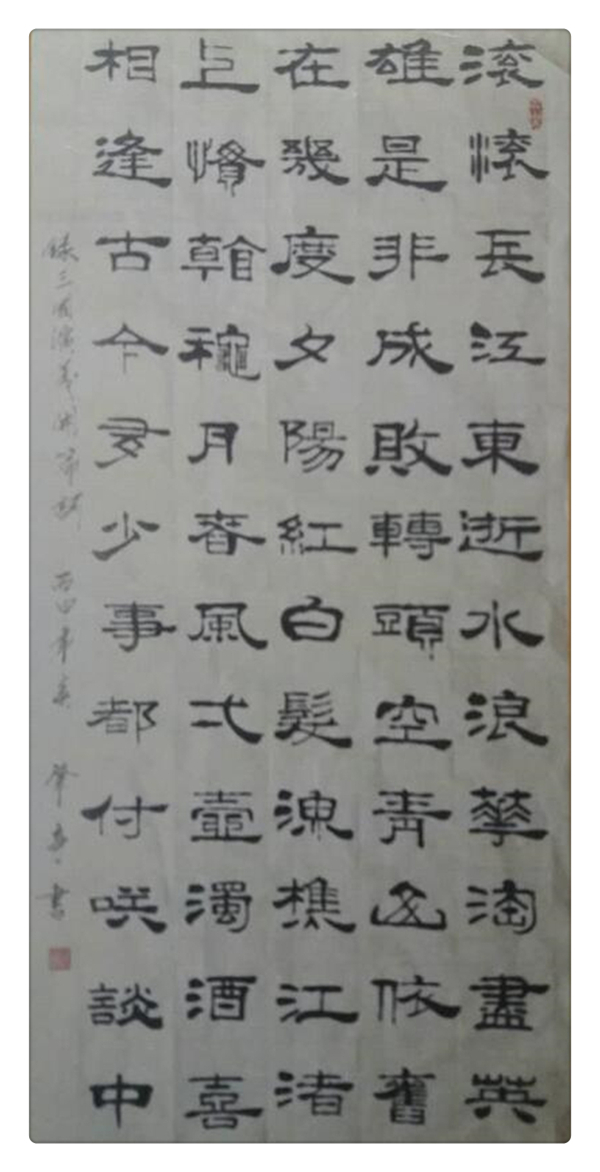 滚滚長江東逝水浪華淘盡英
雄是非成敗轉頭空青山依舊
在幾度夕陽紅白髮漁樵江渚
上慣看穐月春風弌壺濁酒喜
相逢古今多少事都付咲談中
錄三國演義開篇詞 丙申年春 書